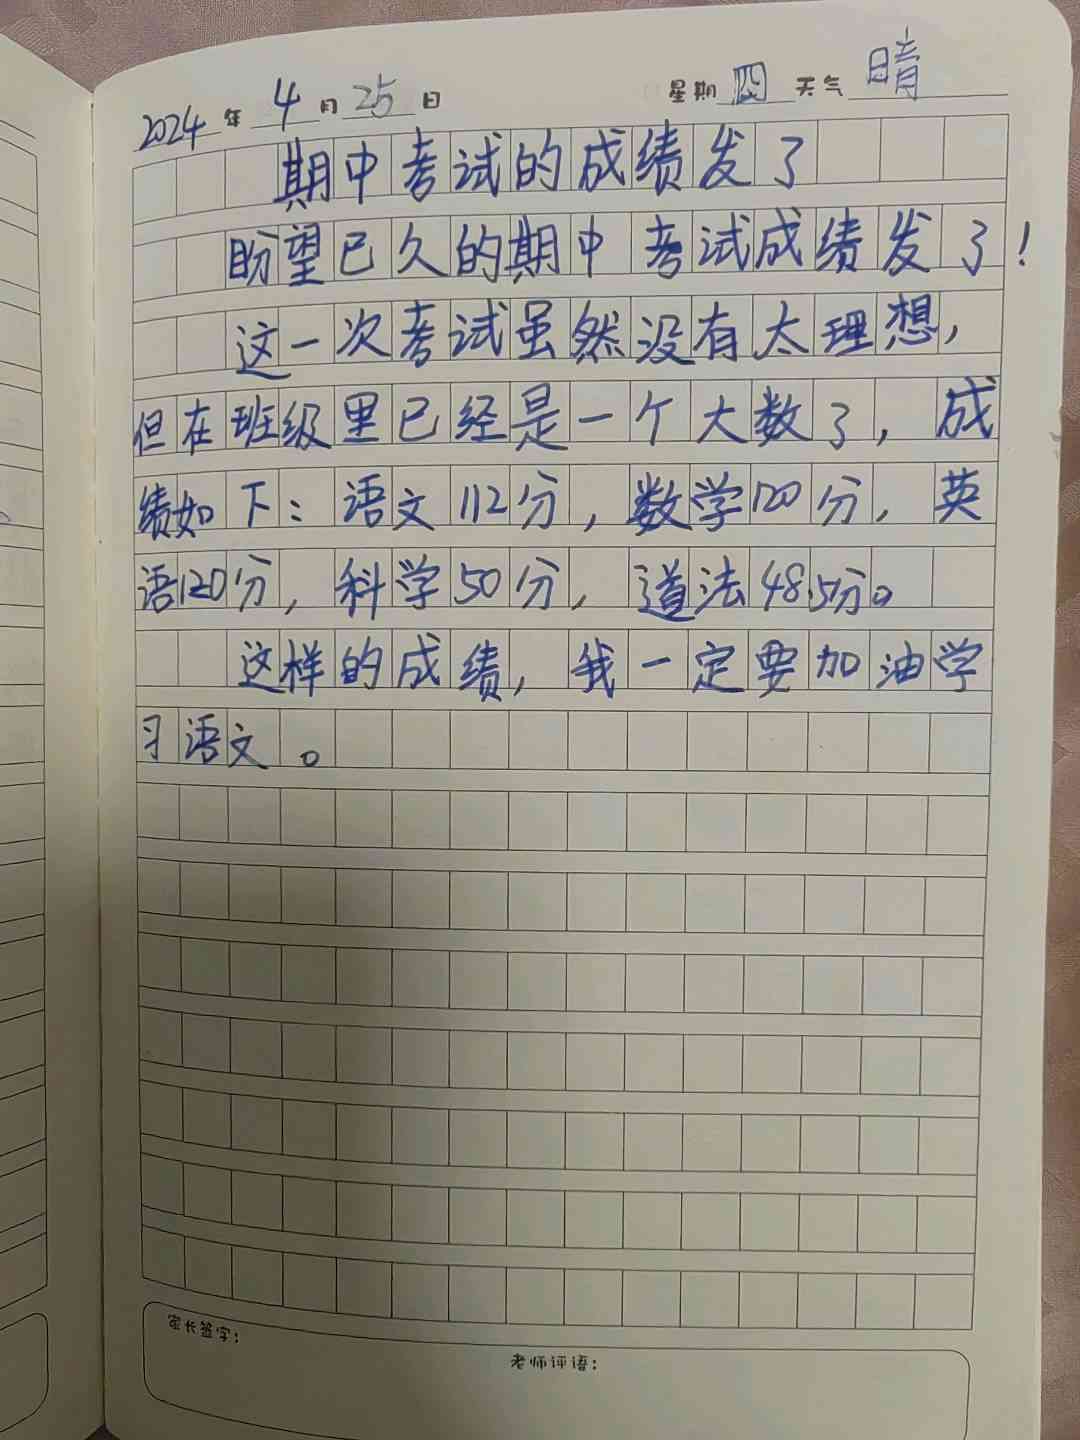 2024年4月25日 星期四天气晴
期中考试的成绩发了
盼望已久的期中考试成绩发了!
这一次考试虽然没有太理想,
但在班级里已经是一个大数了,成
绩如下:语文112分,数学120分,英
语120分,科学50分,道法48.5分。
这样的成绩,我一定要加油学
习语文。
家长签字:
老师评语: